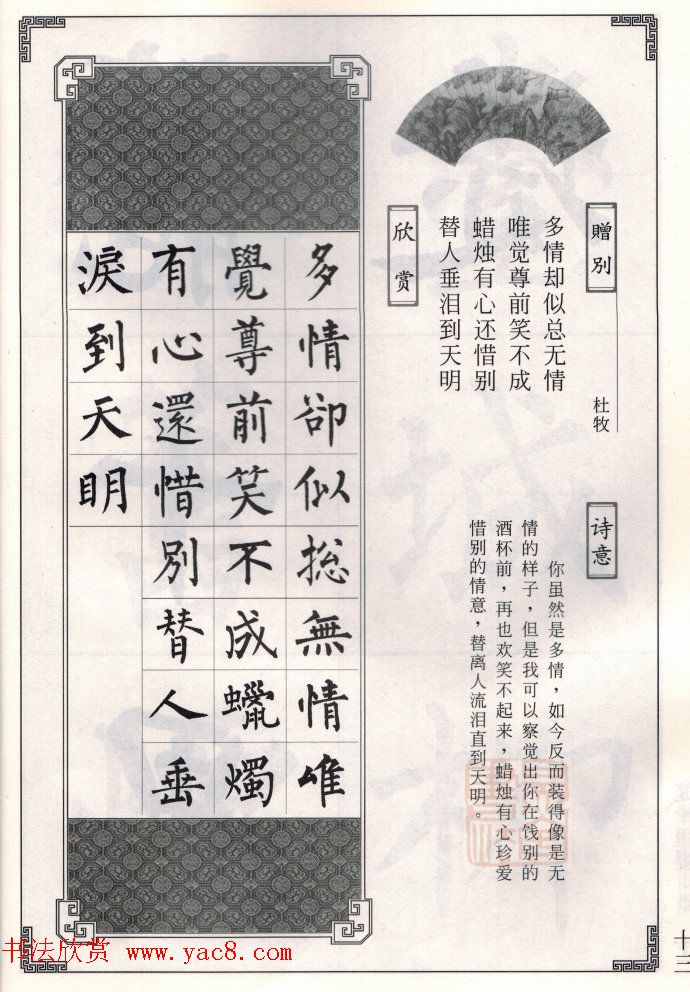 赠别
杜牧
多情却似总无情
唯觉尊前笑不成
蜡烛有心还惜别
替人垂泪到天明
诗意
你虽然是多情，如今反而装得像是无
情的样子，但是我可以察觉出你在饯别的
酒杯前，再也欢笑不起来，蜡烛有心珍爱
惜别的情意，替离人流泪直到天明。
欣赏
多情卻似摠無情唯
覺尊前笑不成蠟燭
有心還惜別替人垂
淚到天明
十三
书法欣赏 www.yac8.com